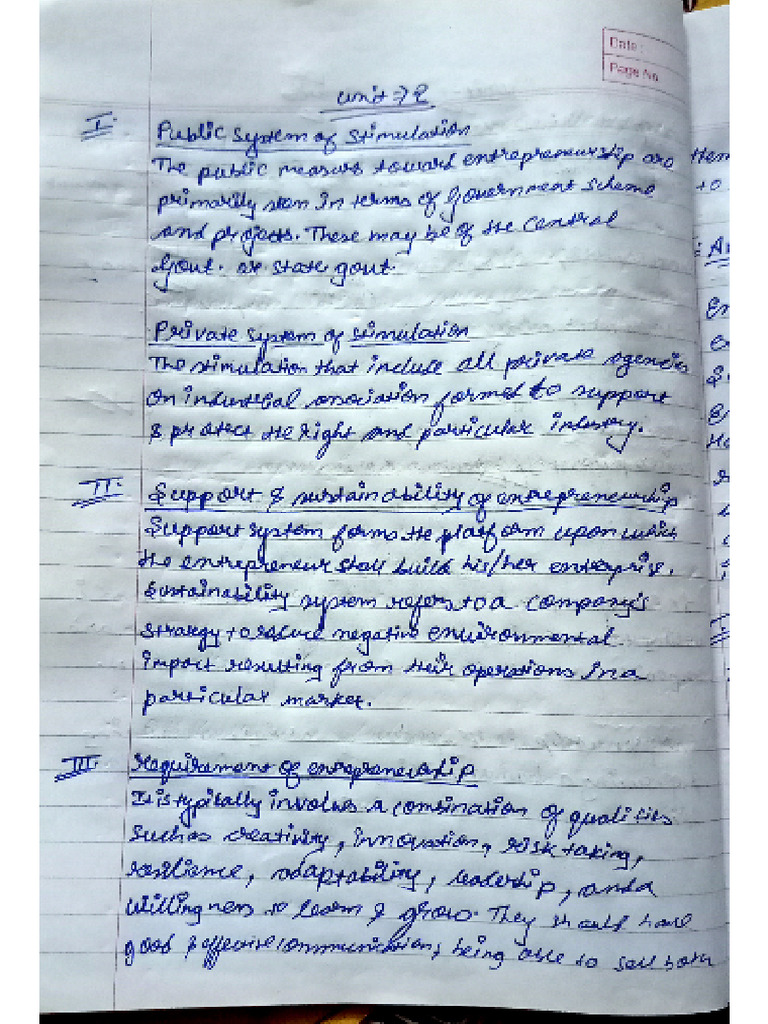 Date:
Page No
Unit → 2
I. Public System of Stimulation
The public measurs toward entrepreneurship are
primarily seen in terms of Government scheme
and projects. These may be of the central
Govt. or state govt.
Private system of stimulation
The stimulation that include all private agencies
on industrial association formed to support
& protect the right and particular industry.
II. Support & sustainability of entrepreneurship
Support system forms the platform upon which
the entrepreneur shall build his/her enterprise.
Sustainability system refers to a company's
strategy to reduce negative environmental
impact resulting from their operations in a
particular market.
III. Requirement of entrepreneurship
It is typically involves a combination of qualities
such as creativity, innovation, risk taking,
resilience, adaptability, leadership, and a
willingness to learn & grow. They should have
good & effective communication, being able to sell both